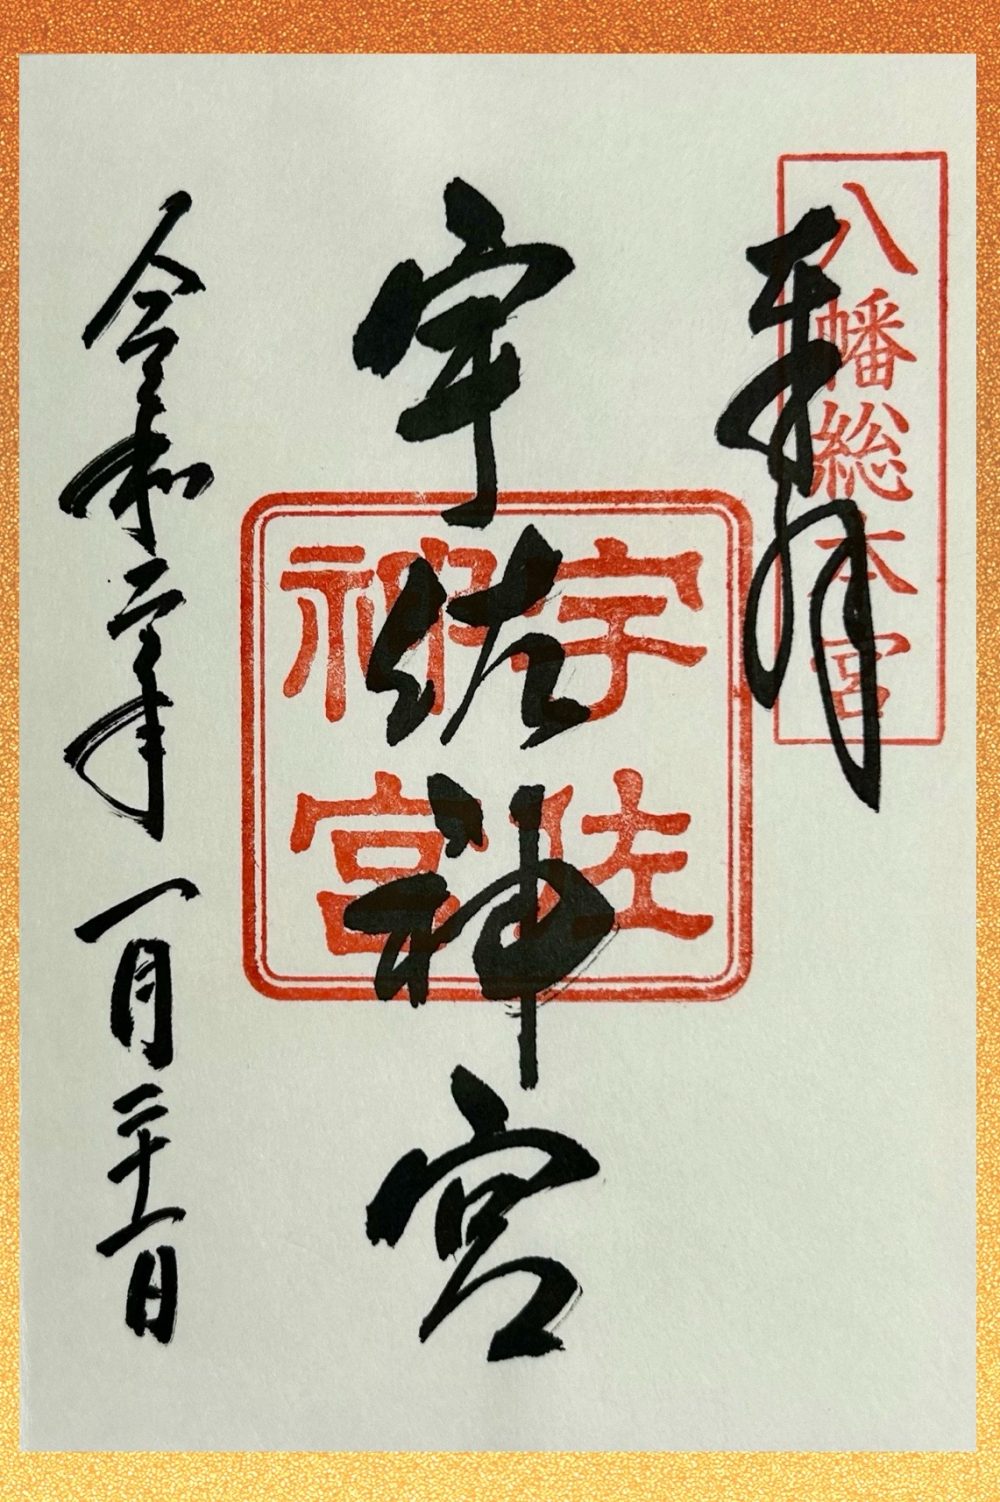 八幡総本宮
奉拝
宇佐神宮
宇佐
神宮
令和二年一月二十一日